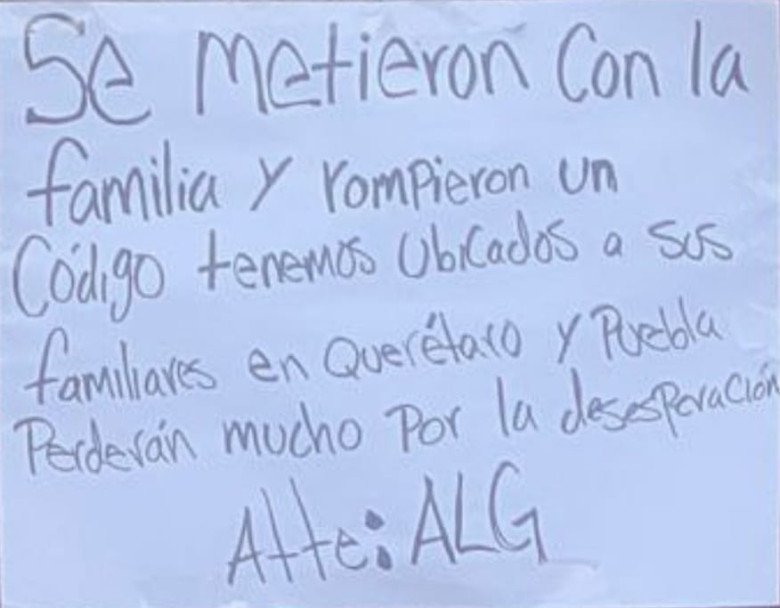 Se metieron con la
familia y rompieron un
Código tenemos Ubicados a sus
familiares en Querétaro y Puebla
Perderán mucho Por la desesperación
Atte: ALG